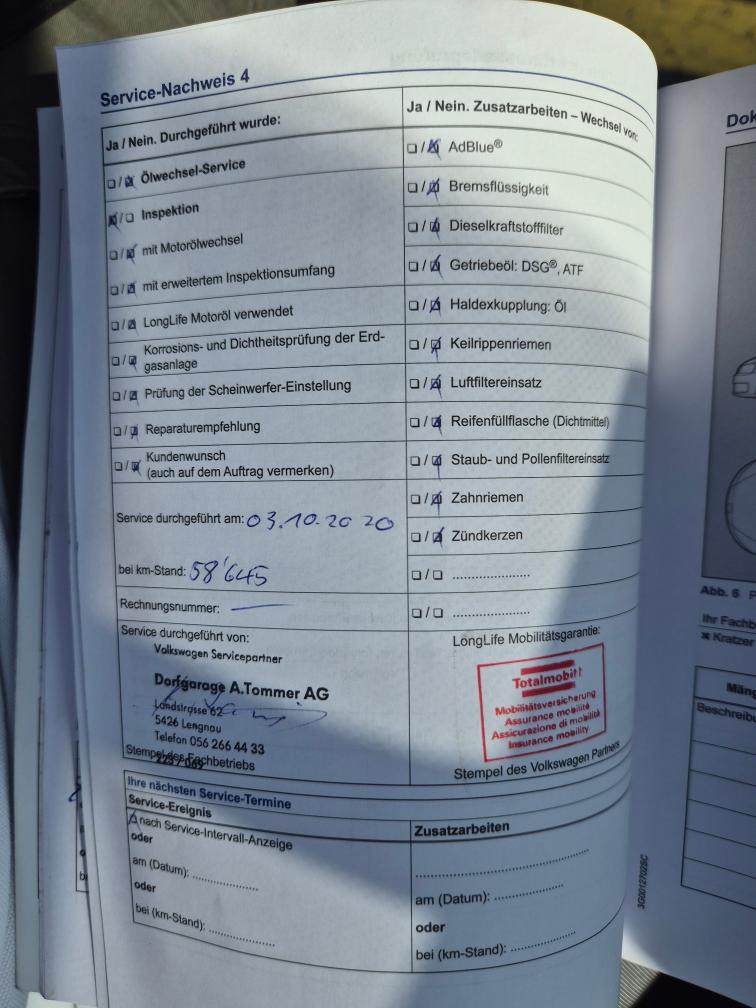 Service-Nachweis 4
Ja / Nein. Durchgeführt wurde:
❏ / ❏ Ölwechsel-Service
❏ / ❏ Inspektion
❏ / ❏ mit Motorölwechsel
❏ / ❏ mit erweitertem Inspektionsumfang
❏ / ❏ LongLife Motoröl verwendet
❏ / ❏ Korrosions- und Dichtheitsprüfung der Erd-
gasanlage
❏ / ❏ Prüfung der Scheinwerfer-Einstellung
❏ / ❏ Reparaturempfehlung
❏ / ❏ Kundenwunsch
(auch auf dem Auftrag vermerken)
Service durchgeführt am: 03.10.2020
bei km-Stand: 58'645
Rechnungsnummer:
Service durchgeführt von:
Volkswagen Servicepartner
Dorfgarage A.Tommer AG
Landstrasse 62
5426 Lengnau
Telefon 056 266 44 33
Stempel des Fachbetriebs
Ja / Nein. Zusatzarbeiten – Wechsel von:
❏ / ❏ AdBlue®
❏ / ❏ Bremsflüssigkeit
❏ / ❏ Dieselkraftstofffilter
❏ / ❏ Getriebeöl: DSG®, ATF
❏ / ❏ Haldexkupplung: Öl
❏ / ❏ Keilrippenriemen
❏ / ❏ Luftfiltereinsatz
❏ / ❏ Reifenfüllflasche (Dichtmittel)
❏ / ❏ Staub- und Pollenfiltereinsatz
❏ / ❏ Zahnriemen
❏ / ❏ Zündkerzen
❏ / ❏ ....................
❏ / ❏ ....................
LongLife Mobilitätsgarantie:
Totalmobil!
Mobilitätsversicherung
Assurance mobilité
Assicurazione di mobilità
Insurance mobility
Stempel des Volkswagen Partners
Ihre nächsten Service-Termine
Service-Ereignis
❏ nach Service-Intervall-Anzeige
oder
am (Datum): ................
oder
bei (km-Stand): ................
Zusatzarbeiten
........................................
am (Datum): ................
oder
bei (km-Stand): ................
3G0012702SC
Dok
Abb. 6 P
Ihr Fachb
✖ Kratzer
Mäng
Beschreibu